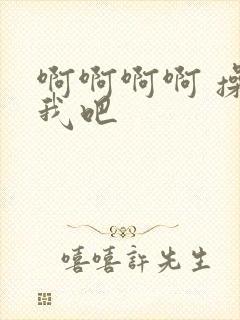 啊啊啊啊 操
我吧
嘻嘻許先生